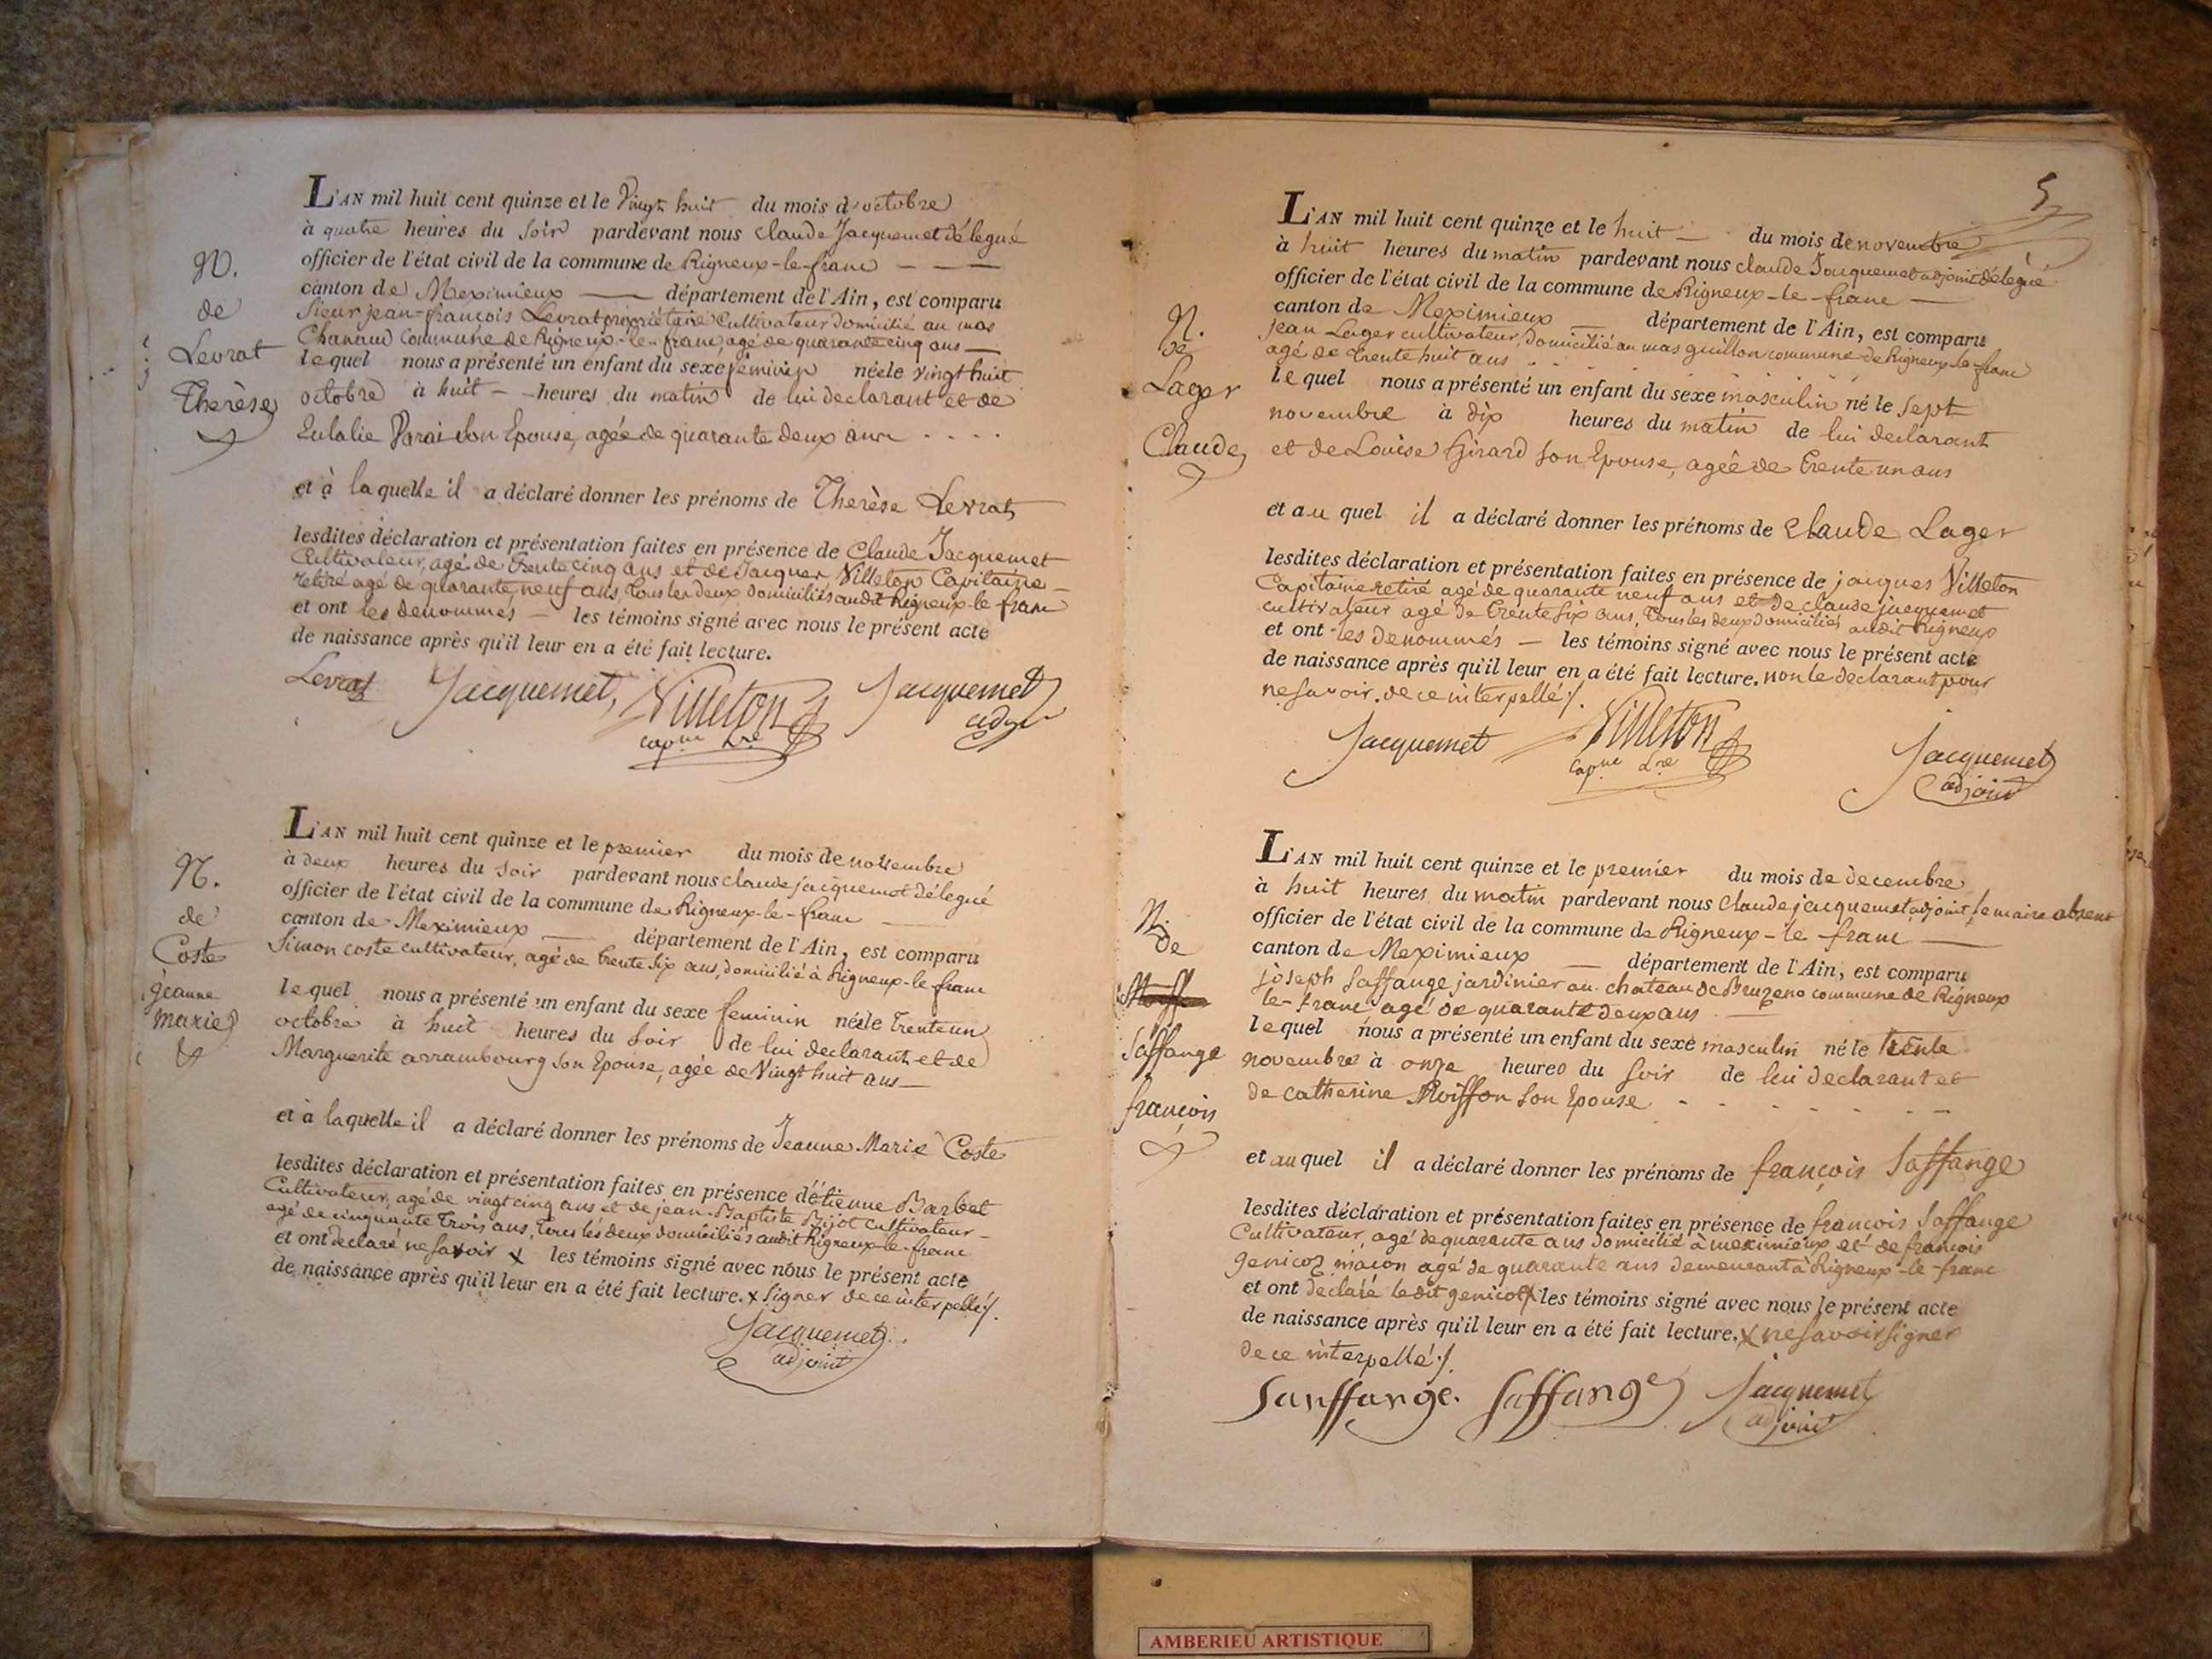 L'AN mil huit cent quinze et le Vingt huit du mois d'octobre
à quatre heures du soir pardevant nous claude Jacquemet délegué
officier de l'état civil de la commune de Rigneux-le-franc
canton de Meximieux département de l'Ain, est comparu
Sieur jean-françois Levrat propriétaire Cultivateur domicilié au mas
Chanaud Commune de Rigneux-le-franc, agé de quarante cinq ans
lequel nous a présenté un enfant du sexe féminin née le vingt huit
octobre à huit heures du matin de lui declarant et de
Eulalie son Epouse, agée de quarante deux ans
et à laquelle il a déclaré donner les prénoms de Therèse Levrat
lesdites déclaration et présentation faites en présence de Claude Jacquemet
Cultivateur, agé de trente cinq ans et de Jacques Villeton Capitaine
retiré agé de quarante neuf ans, tous les deux domiciliés audit Rigneux-le franc
et ont les denommés les témoins signé avec nous le présent acte
de naissance après qu'il leur en a été fait lecture.
Levrat Jacquemet, Villeton Jacquemet
N.
de
Levrat
Therèse
L'AN mil huit cent quinze et le premier du mois de novembre
à deux heures du soir pardevant nous claude jacquemet délegué
officier de l'état civil de la commune de Rigneux-le-franc
canton de Meximieux département de l'Ain, est comparu
Simon coste cultivateur, agé de trente six ans, domicilié à Rigneux-le-franc
lequel nous a présenté un enfant du sexe feminin née le trente un
octobre à huit heures du soir de lui declarant et de
Marguerite arrambourg son Epouse, agée de Vingt huit ans
et à laquelle il a déclaré donner les prénoms de Jeanne Marie Coste
lesdites déclaration et présentation faites en présence d'étienne Barbet
Cultivateur, agé de vingt cinq ans et de jean-Baptiste Bijot cultivateur
agé de cinquante trois ans, tous les deux domiciliés audit Rigneux-le-franc
et ont declaré ne savoir x les témoins signé avec nous le présent acte
de naissance après qu'il leur en a été fait lecture. x signer de ce interpellé ./.
Jacquemet
adjoint
N.
de
Coste
jeanne
marie
5
L'AN mil huit cent quinze et le huit du mois de novembre
à huit heures du matin pardevant nous claude Jacquemet adjoint délegué
officier de l'état civil de la commune de Rigneux-le-franc
canton de Meximieux département de l'Ain, est comparu
jean Lager cultivateur, domicilié au mas guillon commune de Rigneux-le-franc
agé de trente huit ans
lequel nous a présenté un enfant du sexe masculin né le sept
novembre à dix heures du matin de lui declarant
et de Louise Girard son Epouse, agée de trente un ans
et au quel il a déclaré donner les prénoms de claude Lager
lesdites déclaration et présentation faites en présence de jacques Villeton
Capitaine retiré agé de quarante neuf ans et de claude jacquemet
cultivateur agé de trente six ans, tous les deux domiciliés audit Rigneux
et ont les denommés les témoins signé avec nous le présent acte
de naissance après qu'il leur en a été fait lecture. non le declarant pour
ne savoir. de ce interpellé ./.
Jacquemet Villeton Jacquemet
adjoint
N.
de
Lager
Claude
L'AN mil huit cent quinze et le premier du mois de decembre
à huit heures du matin pardevant nous Claude jacquemet, adjoint, le maire absent
officier de l'état civil de la commune de Rigneux-le franc
canton de Meximieux département de l'Ain, est comparu
joseph Saffange jardinier au chateau de commune de Rigneux
le-franc agé de quarante deux ans
lequel nous a présenté un enfant du sexe masculin né le trente
novembre à onze heures du soir de lui declarant et
de catherine Moiffon son Epouse
et au quel il a déclaré donner les prénoms de françois Saffange
lesdites déclaration et présentation faites en présence de françois Saffange
Cultivateur, agé de quarante ans domicilié à meximieux et de françois
genicoz maçon agé de quarante ans demeurant à Rigneux-le-franc
et ont declaré ledit genicoz x les témoins signé avec nous le présent acte
de naissance après qu'il leur en a été fait lecture. x ne savoir signer
de ce interpellé ./.
Sanffange. Saffange Jacquemet
adjoint
N.
de
Saffange
françois
AMBERIEU ARTISTIQUE